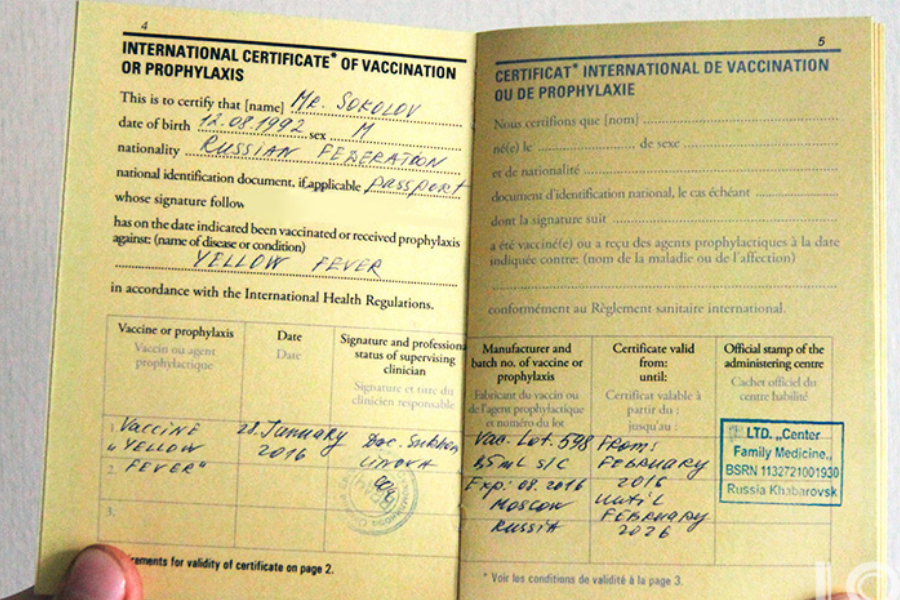 4
INTERNATIONAL CERTIFICATE* OF VACCINATION
OR PROPHYLAXIS
This is to certify that [name] MR. SOKOLOV
date of birth 12.08.1992 sex M
nationality RUSSIAN FEDERATION
national identification document, if applicable passport
whose signature follow
has on the date indicated been vaccinated or received prophylaxis
against: (name of disease or condition)
YELLOW FEVER
in accordance with the International Health Regulations.
Vaccine or prophylaxis
Vaccin ou agent
prophylactique
Date
Date
Signature and professiona
status of supervising
clinician
Signature et titre du
clinicien responsable
1. VACCINE
„YELLOW
2. FEVER"
3.
28. January
2016
Doc.
rements for validity of certificate on page 2.
5
CERTIFICAT* INTERNATIONAL DE VACCINATION
OU DE PROPHYLAXIE
Nous certifions que [nom]
né(e) le de sexe
et de nationalité
document d'identification national, le cas échéant
dont la signature suit
a été vacciné(e) ou a reçu des agents prophylactiques à la date
indiquée contre: (nom de la maladie ou de l'affection)
conformément au Règlement sanitaire international.
Manufacturer and
batch no. of vaccine or
prophylaxis
Fabricant du vaccin ou
de l'agent prophylactique
et numéro du lot
Certificate valid
from:
until:
Certificat valable à
partir du :
jusqu'au :
Official stamp of the
administering centre
Cachet officiel du
centre habilité
Vac. Lot. 598
S/C
Exp: 08.2016
MOSCOW
RUSSIA
FROM:
FEBRUARY
2016
UNTIL
FEBRUARY
2026
LTD. „Center
Family Medicine„
BSRN 1132721001930
Russia Khabarovsk
* Voir les conditions de validité à la page 3.